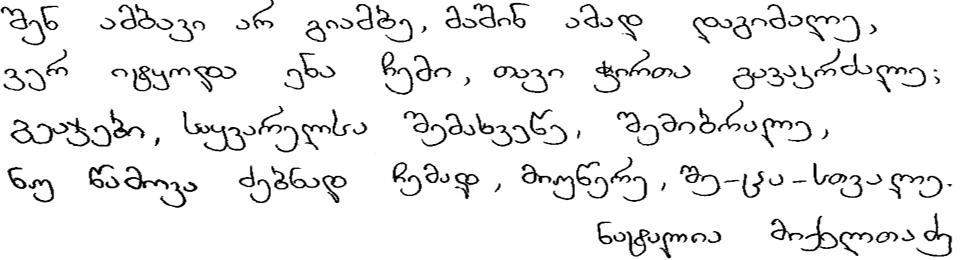 შენ ამბავი არ გიამბე, მაშინ ამად დაგიმალე,
ვერ იტყოდა ენა ჩემი, თავი ჭირთა გავაკრძალე;
გეაჯები, საყვარელსა შემახვეწე, შემიბრალე,
ნუ წამოვა ძებნად ჩემად, მიუწერე, შე-ცა-სთვალე.
ნატალია მიქელთაძე